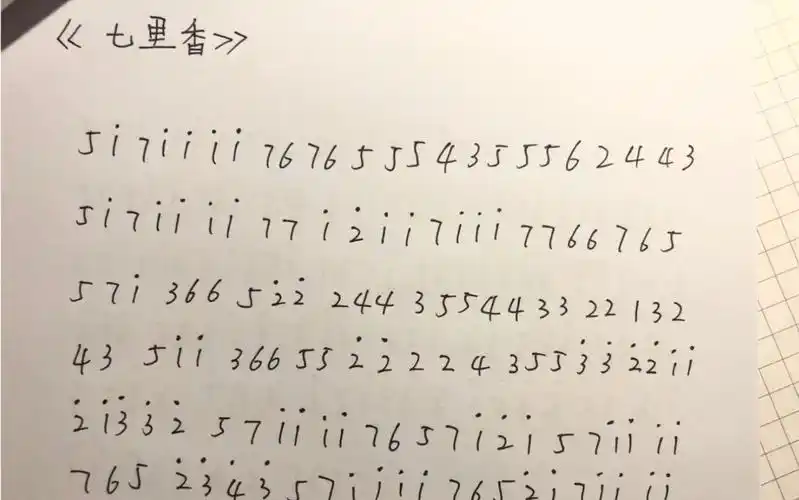 《七里香》
5i7iiii 7676 5 5 5 4 3 5 5 5 6 2 4 4 3
5i7ii ii 77 i 2̇ i i 7iii 7766765
57i 366 52̇2̇ 244 3554433 22 132
43 5ii 366 55 2̇ 2̇ 2 2 4 3553̇3̇2̇2̇ii
2̇i3̇3̇2̇ 57iiii 7657i2̇i 57ii ii
765 2̇3̇4̇3̇ 57iiii 7652̇i7ii ii